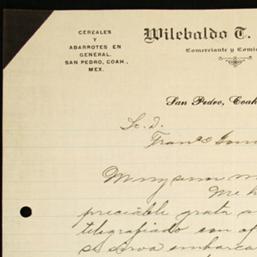 CEREALES
Y
ABARROTES EN
GENERAL.
SAN PEDRO, COAH.,
MEX.
Wilebaldo T.
Comerciante y Comi
San Pedro, Coah
Sr. D.
Franco
Muy señor
Me h
preciable grata
telegrafiado con
se sirva embarca